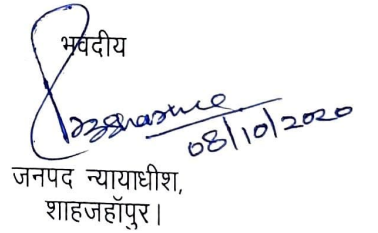 भवदीय
08/10/2020
जनपद न्यायाधीश,
शाहजहॉपुर।